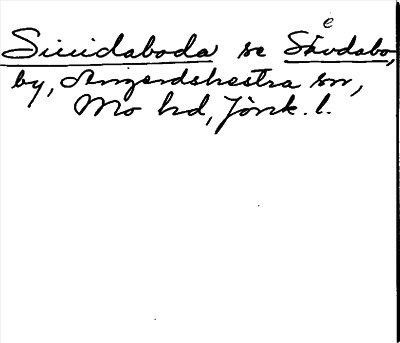 Siuidaboda se Skedabo,
by, Angerdshestra sn,
Mo hd, Jönk. l.